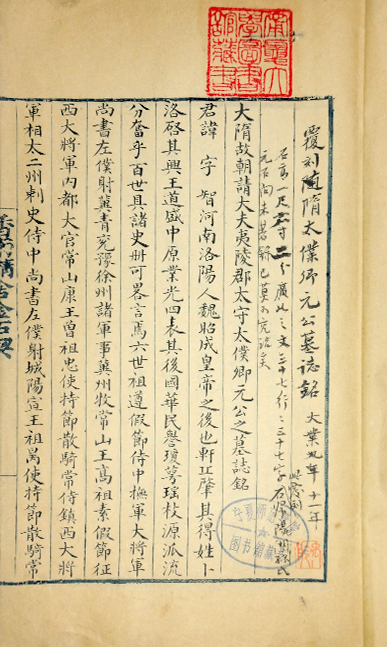 覆刻隋太僕卿元公墓誌銘 大業九年十一年
大隋故朝請大夫夷陵郡太守太僕卿元公之墓誌銘
君諱 字 智河南洛陽人魏昭成皇帝之後也軒丘肇其得姓卜
洛啓其興王道盛中原業光四表其後國華民譽瓊萼瑤枝源派流
分奮乎百世具諸史冊可畧言焉六世祖遵假節侍中撫軍大將軍
尚書左僕射冀青兗豫徐州諸軍事冀州牧常山王高祖素假節征
西大將軍内都大官常山康王曾祖忠使持節散騎常侍鎮西大將
軍相太二州刺史侍中尚書左僕射城陽宣王祖昺使持節散騎常